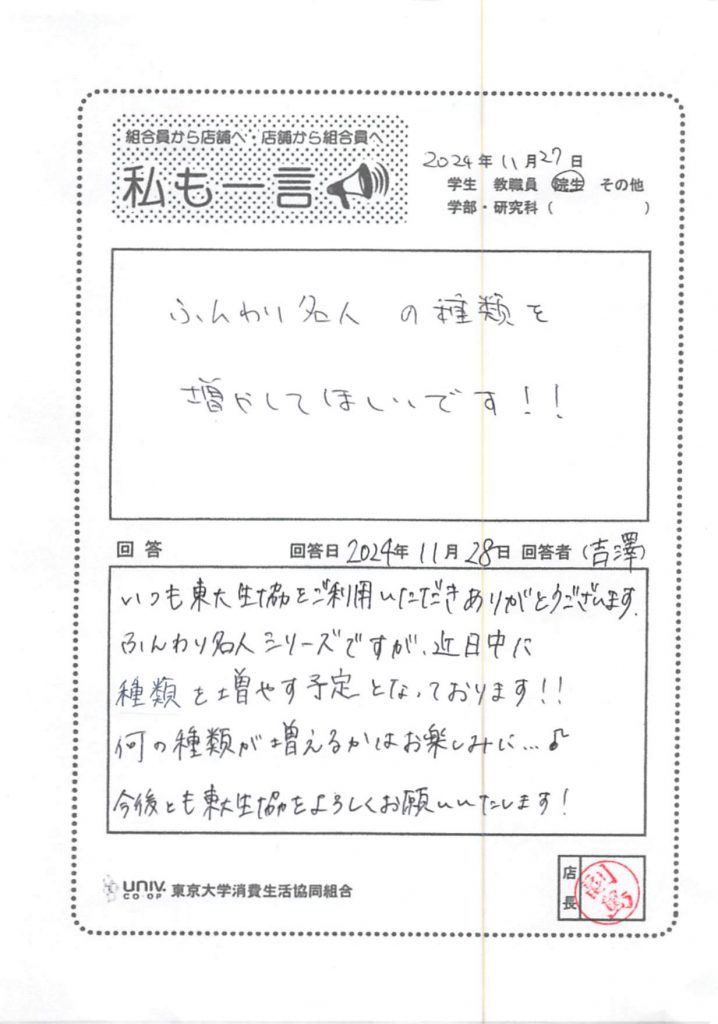 組合員から店舗へ・店舗から組合員へ
私も一言
2024年11月27日
学生 教職員 院生 その他
学部・研究科( )
ふんわり名人 の種類を
増やしてほしいです!!
回答 回答日 2024年 11月 28日 回答者 (吉澤)
いつも東大生協をご利用いただきありがとうございます。
ふんわり名人シリーズですが、近日中に
種類を増やす予定となっております!!
何の種類が増えるかはお楽しみに...♪
今後とも東大生協をよろしくお願いいたします!
UNIV. CO-OP 東京大学消費生活協同組合
店長